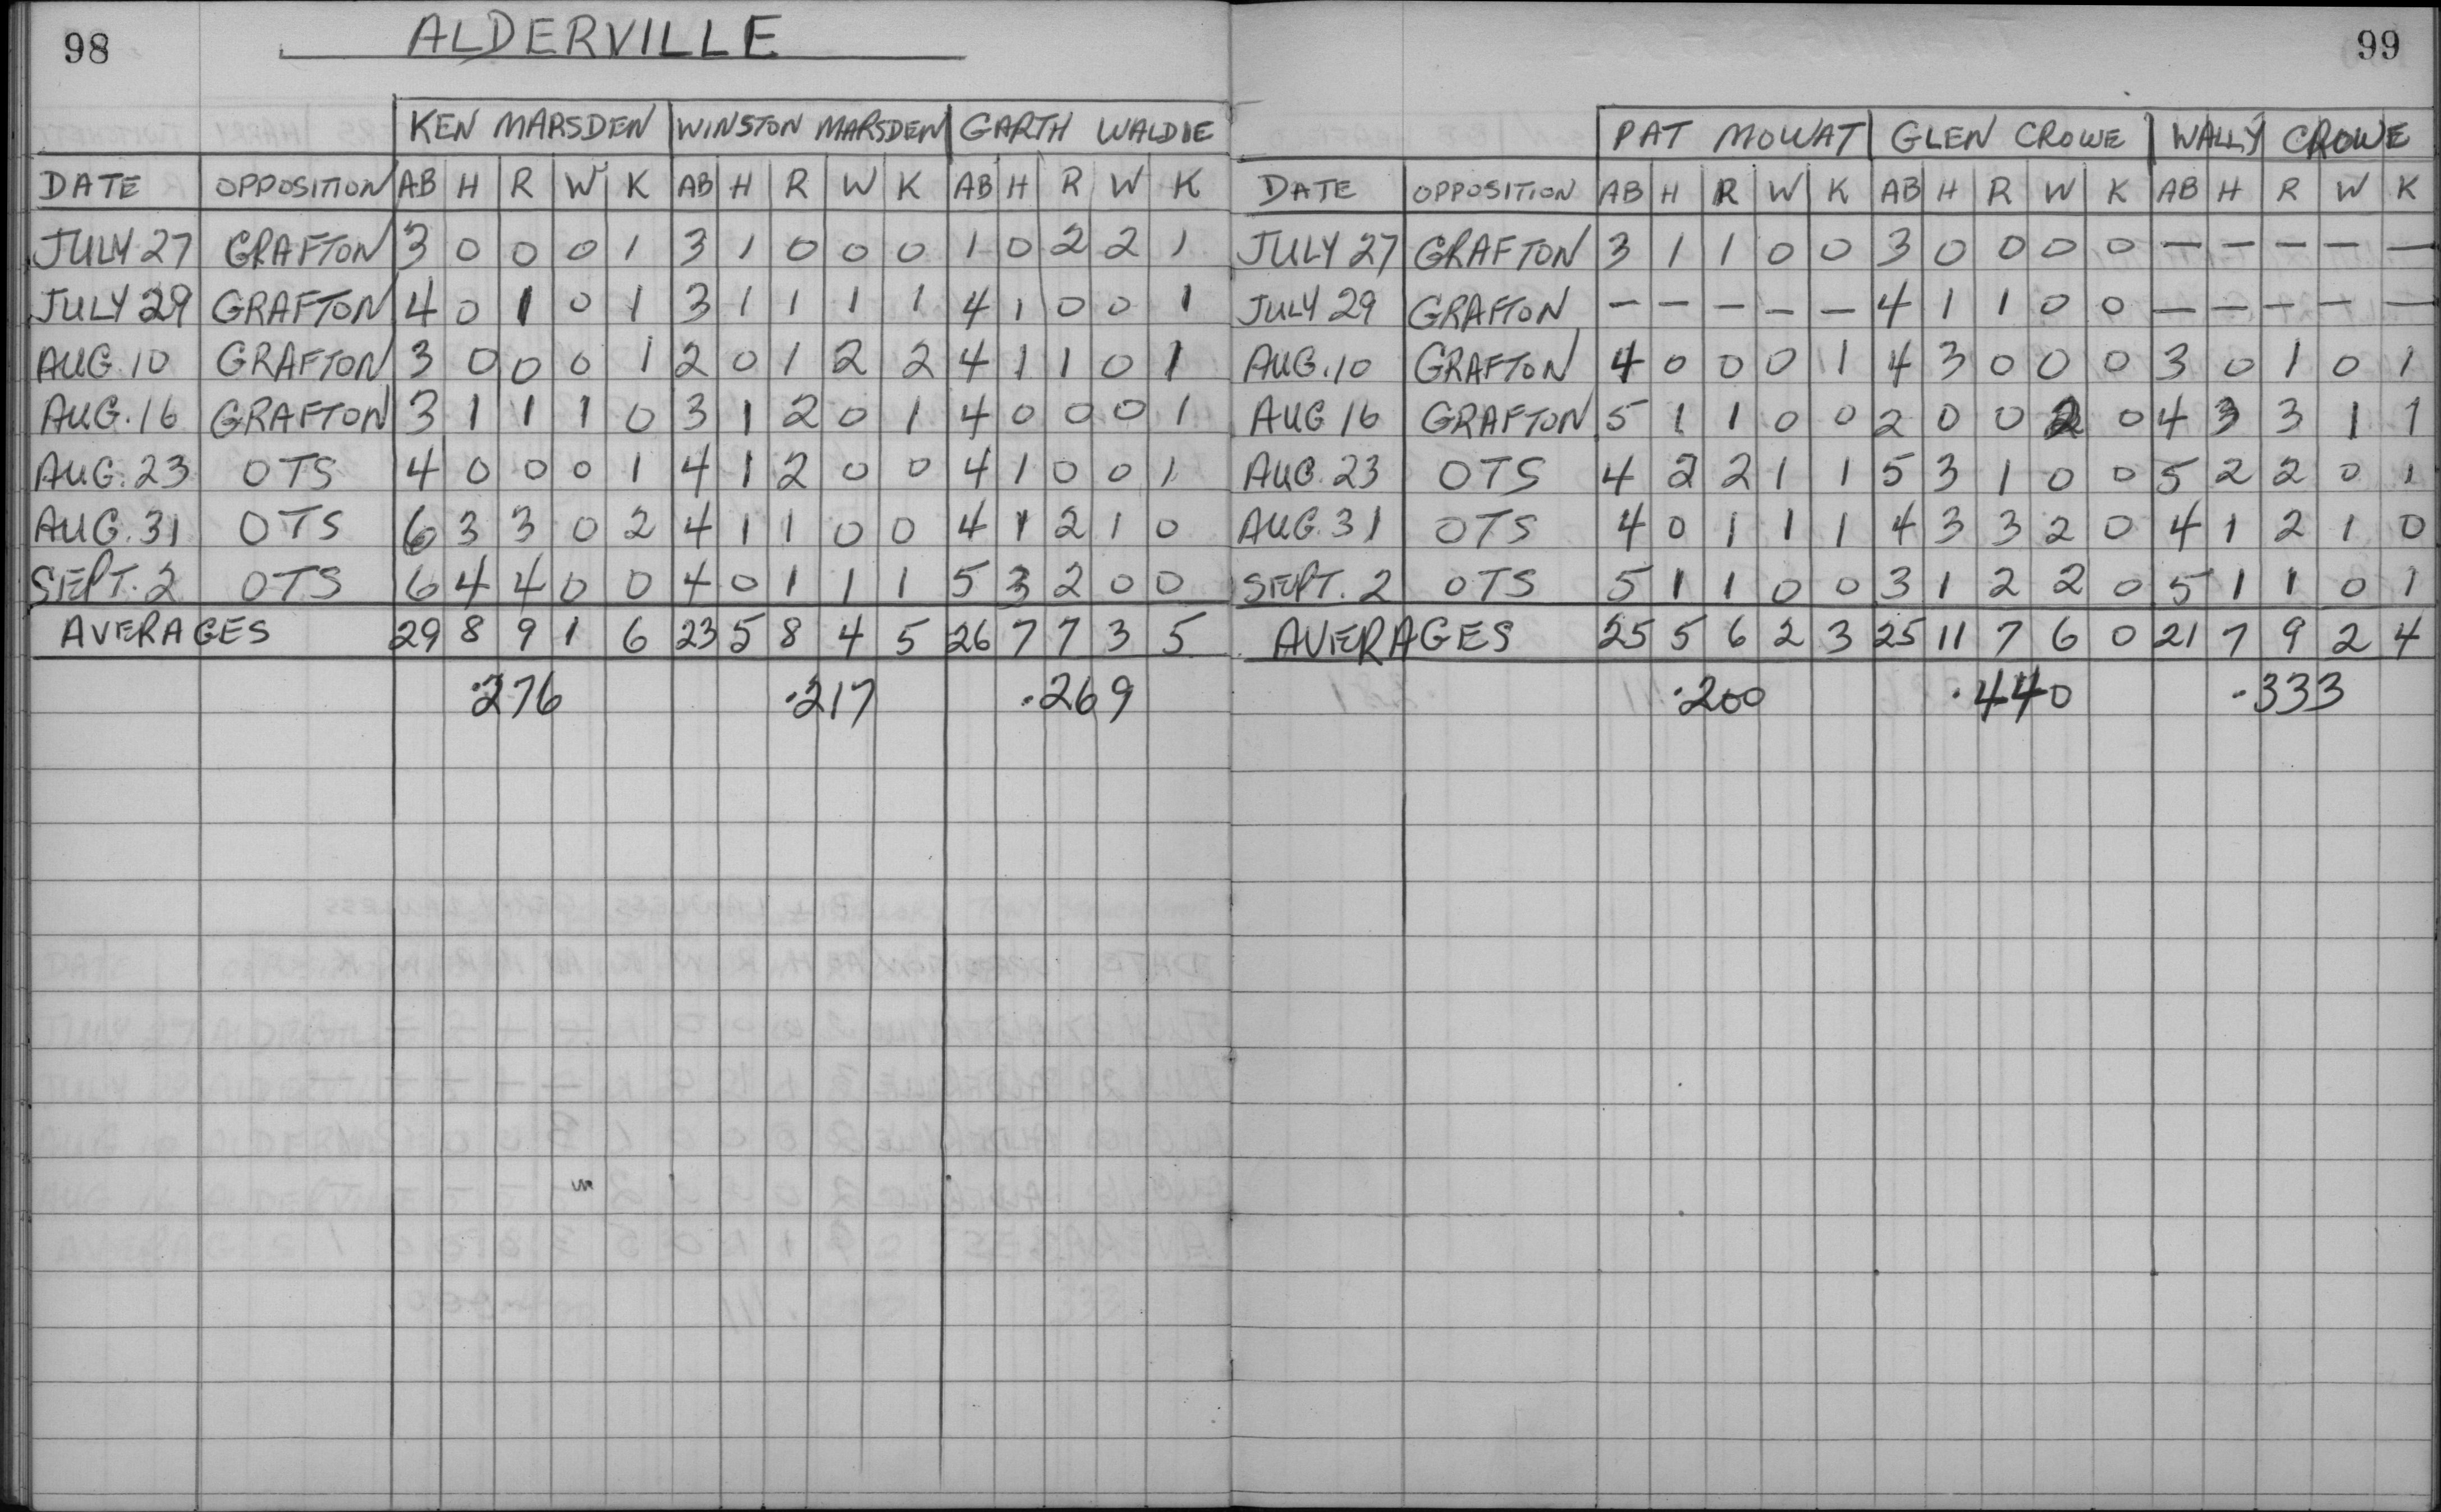 98
ALDERVILLE
KEN MARSDEN WINSTON MARSDEN GARTH WALDIE
DATE OPPOSITION AB H R W K AB H R W K AB H R W K
JULY 27 GRAFTON 3 0 0 0 1 3 1 0 0 0 1 0 2 2 1
JULY 29 GRAFTON 4 0 1 0 1 3 1 1 1 1 4 1 0 0 1
AUG. 10 GRAFTON 3 0 0 0 1 2 0 1 2 2 4 1 1 0 1
AUG. 16 GRAFTON 3 1 1 1 0 3 1 2 0 1 4 0 0 0 1
AUG. 23 OTS 4 0 0 0 1 4 1 2 0 0 4 1 0 0 1
AUG. 31 OTS 6 3 3 0 2 4 1 1 0 0 4 1 2 1 0
SEPT. 2 OTS 6 4 4 0 0 4 0 1 1 1 5 3 2 0 0
AVERAGES 29 8 9 1 6 23 5 8 4 5 26 7 7 3 5
.276 .217 .269
99
PAT MOWAT GLEN CROWE WALLY CROWE
DATE OPPOSITION AB H R W K AB H R W K AB H R W K
JULY 27 GRAFTON 3 1 1 0 0 3 0 0 0 0 — — — — —
JULY 29 GRAFTON — — — — — 4 1 1 0 0 — — — — —
AUG. 10 GRAFTON 4 0 0 0 1 4 3 0 0 0 3 0 1 0 1
AUG 16 GRAFTON 5 1 1 0 0 2 0 0 2 0 4 3 3 1 1
AUG. 23 OTS 4 2 2 1 1 5 3 1 0 0 5 2 2 0 1
AUG. 31 OTS 4 0 1 1 1 4 3 3 2 0 4 1 2 1 0
SEPT. 2 OTS 5 1 1 0 0 3 1 2 2 0 5 1 1 0 1
AVERAGES 25 5 6 2 3 25 11 7 6 0 21 7 9 2 4
.200 .440 .333